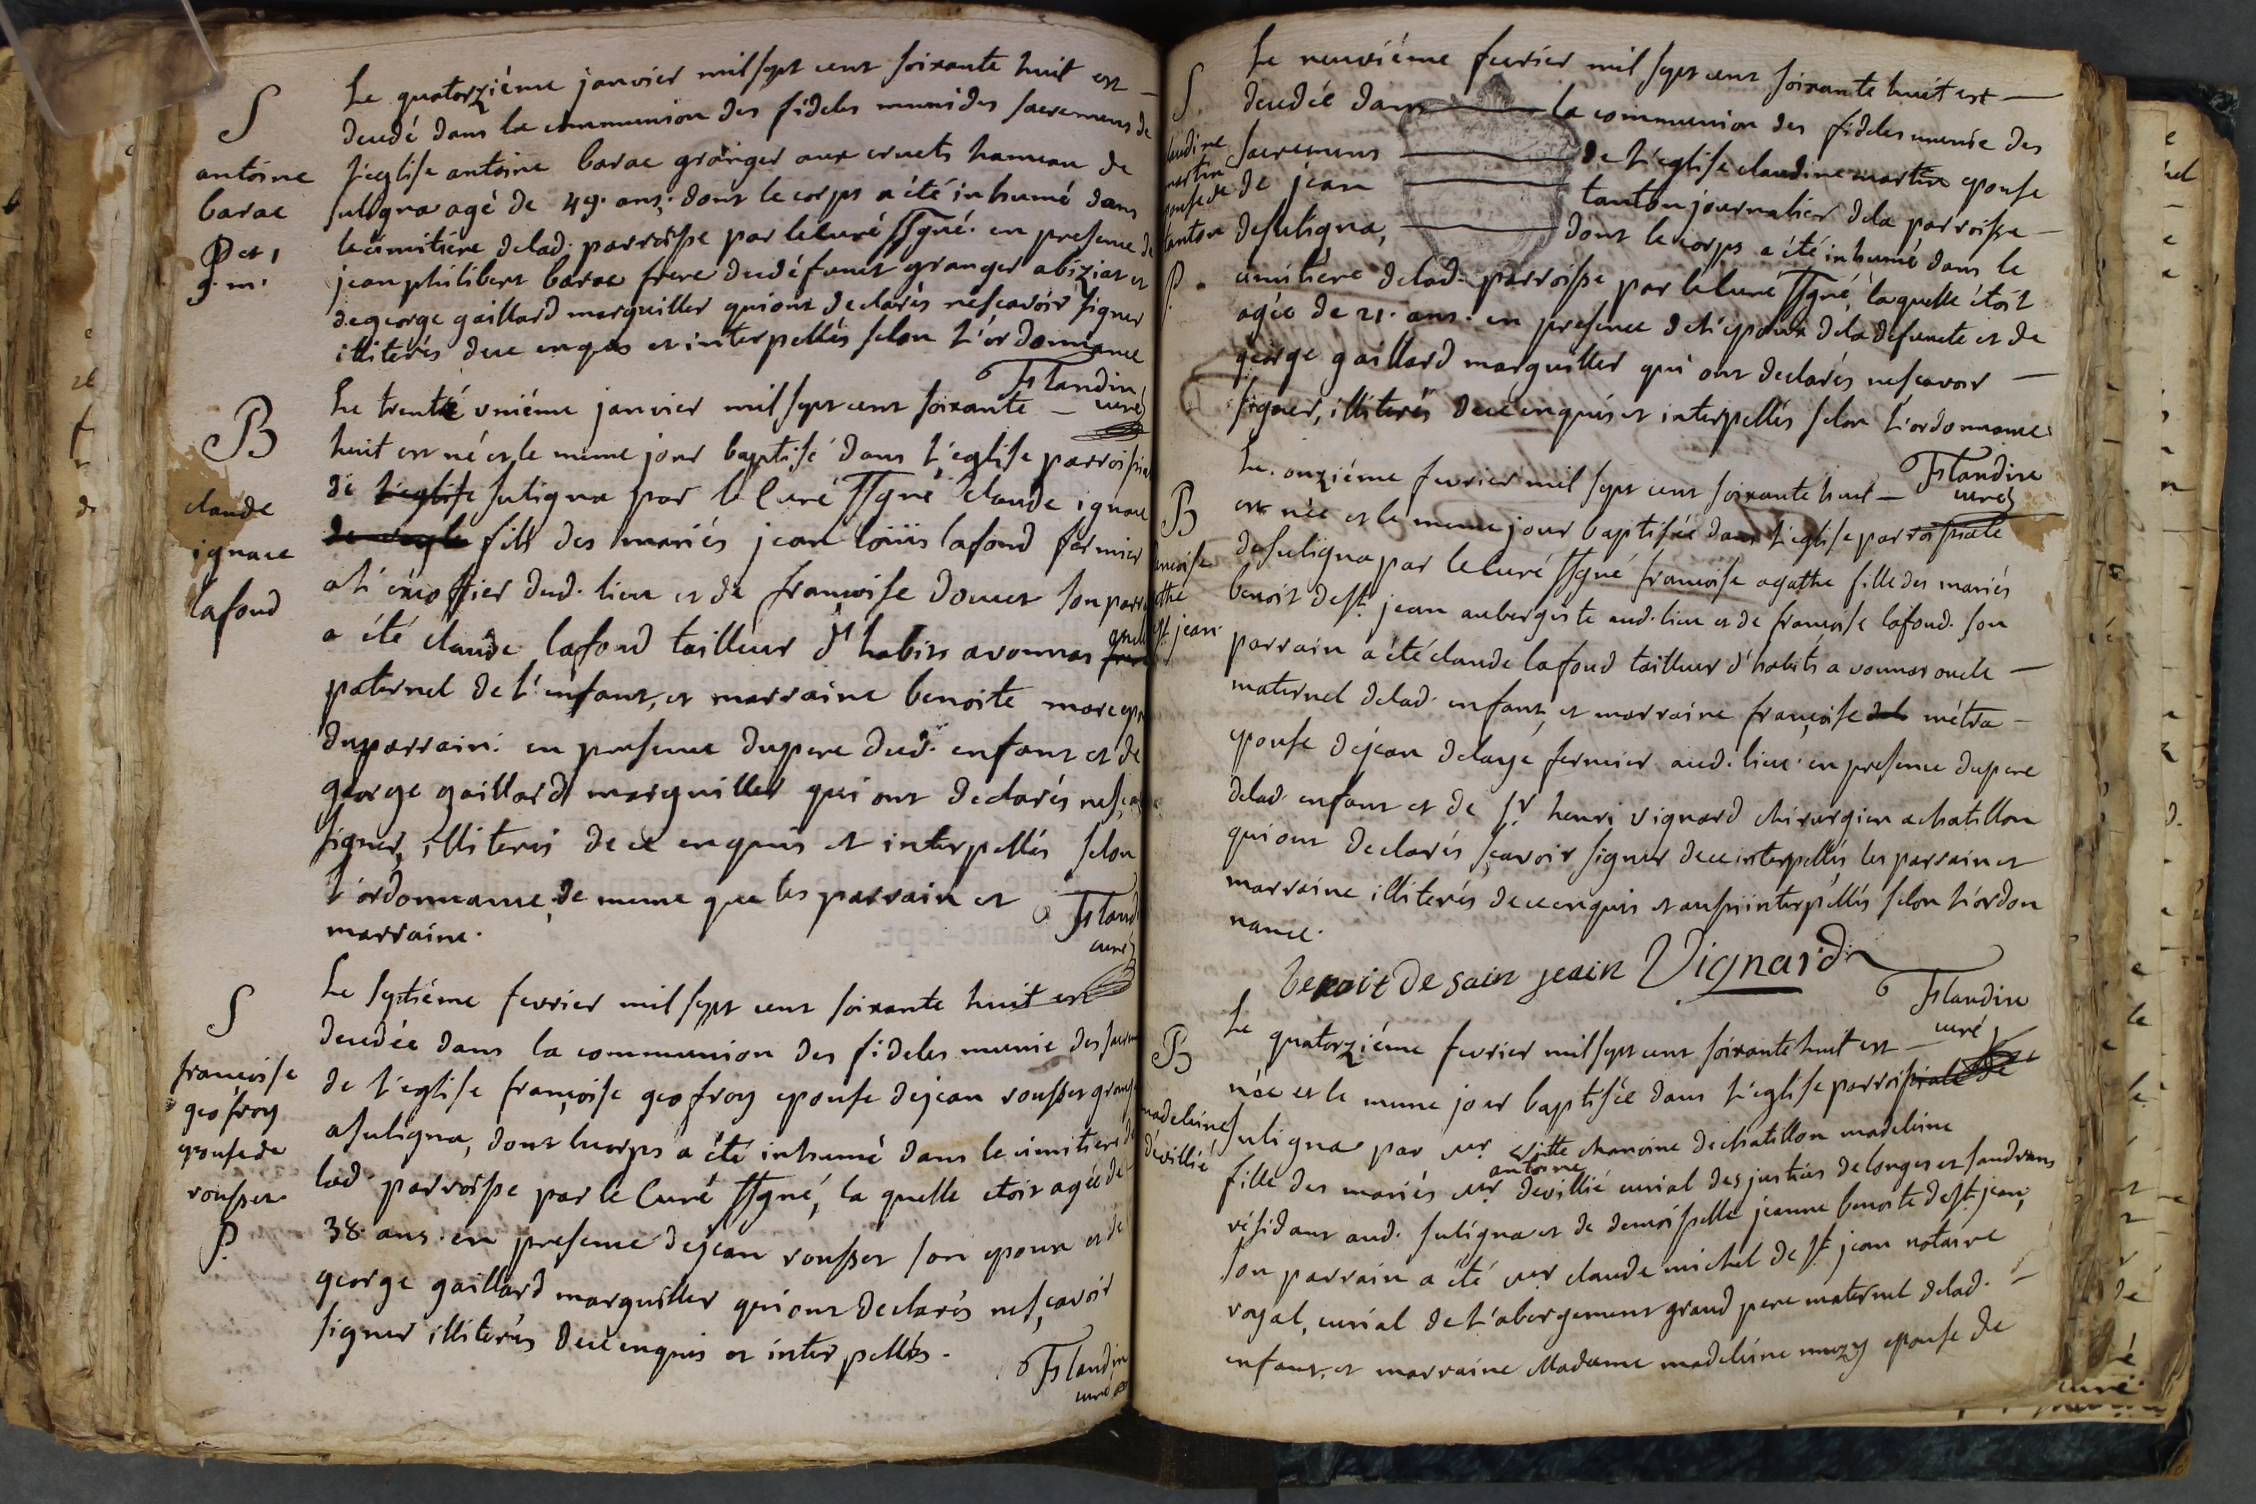 S
antoine
barae
P et 1
g. m.
Le quatorziéme janvier mil sept cent soixante huit est
decedé dans la communion des fideles muni des sacremens de
l'eglise antoine barae granger aux cruets hameau de
suligna agé de 49. ans; dont le corps a été inhumé dans
le cimitiére de lad. parroisse par le curé ssgné. en presence de
jean philibert barae frere dudéfunct granger abiziat et
de george gaillard marguiller qui ont declarés nescavoir signer
illiterés de ce enquis et interpellés selon l'ordonnance
Flandin
curé
B
claude
ignace
lafond
Le trente uniéme janvier mil sept cent soixante
huit est né et le meme jour baptisé dans l'eglise parroissiale
de l'eglise suligna par le Curé ssgné Claude ignace
fils des mariés jean loüis lafond fermier
dud. lieu et de francoise son parrain
a été claude lafond tailleur d'habits a vonnas
oncle
paternel de l'enfant, et marraine benoite
du parrain. en presence du pere dud. enfant et de
george gaillard marguiller qui ont declarés nescavoir
signer, illiterés de ce enquis et interpellés selon
l'ordonnance, de meme que les parrain et
marraine.
Flandin
curé
S
françoise
geofroy
epouse de
rousset
P.
Le septiéme fevrier mil sept cent soixante huit est
decedée dans la communion des fideles munie des sacremens
de l'eglise françoise geofroy epouse de jean rousset granger
a suligna, dont le corps a été inhumé dans le cimitiere de
lad. parroisse par le Curé ssgné, la quelle etoit agée de
38. ans. en presence de jean rousset son epoux et de
george gaillard marguiller qui ont declarés nesçavoir
signer illiterés de ce enquis et interpellés.
Flandin
curé
S
claudine
martin
epouse de
tanton
P.
Le neuviéme fevrier mil sept cent soixante huit est
decedée dans la communion des fideles munie des
sacremens de l'eglise claudine martin epouse
de jean tanton journalier de la parroisse
de suligna, dont le corps a été inhumé dans le
cimitiere de lad. parroisse par le Curé ssgné, laquelle étoit
agée de 21. ans. en presence de l'epoux de la defuncte et de
george gaillard marguiller qui ont declarés nescavoir
signer, illiterés de ce enquis et interpellés selon l'ordonnance
Flandin
curé
B
francoise
agathe
de st. jean
Le onziéme fevrier mil sept cent soixante huit
est née et le meme jour baptisée dans l'eglise parroissiale
de suligna par le curé ssgné francoise agathe fille des mariés
benoit de st. jean aubergiste aud. lieu et de francoise lafond. son
parrain a été claude lafond tailleur d'habits a vonnas oncle
maternel de lad. enfant, et marraine françoise métra
epouse de jean delaye fermier aud. lieu en presence du pere
de lad. enfant et de Sr. henri vignard chirurgien a chatillon
qui ont declarés sçavoir signer de ce interpellés, les parrain et
marraine illiterés de ce enquis et aussi interpellés selon l'ordon
nance.
benoit de sain jean Vignard
Flandin
curé
B
madeleine
dévillié
Le quatorziéme fevrier mil sept cent soixante huit est
née et le meme jour baptisée dans l'eglise parroissiale de
suligna par mr vitte chanoine de chatillon madeleine
antoine
fille des mariés mr devillié curial des justices de longes et sandrans
résidant aud. suligna et de demoisselle jeanne benoite de st. jean,
son parrain a été mr claude michel de st. jean notaire
royal, curial de l'abergement grand pere maternel de lad.
enfant, et marraine Madame madeleine muzy epouse de